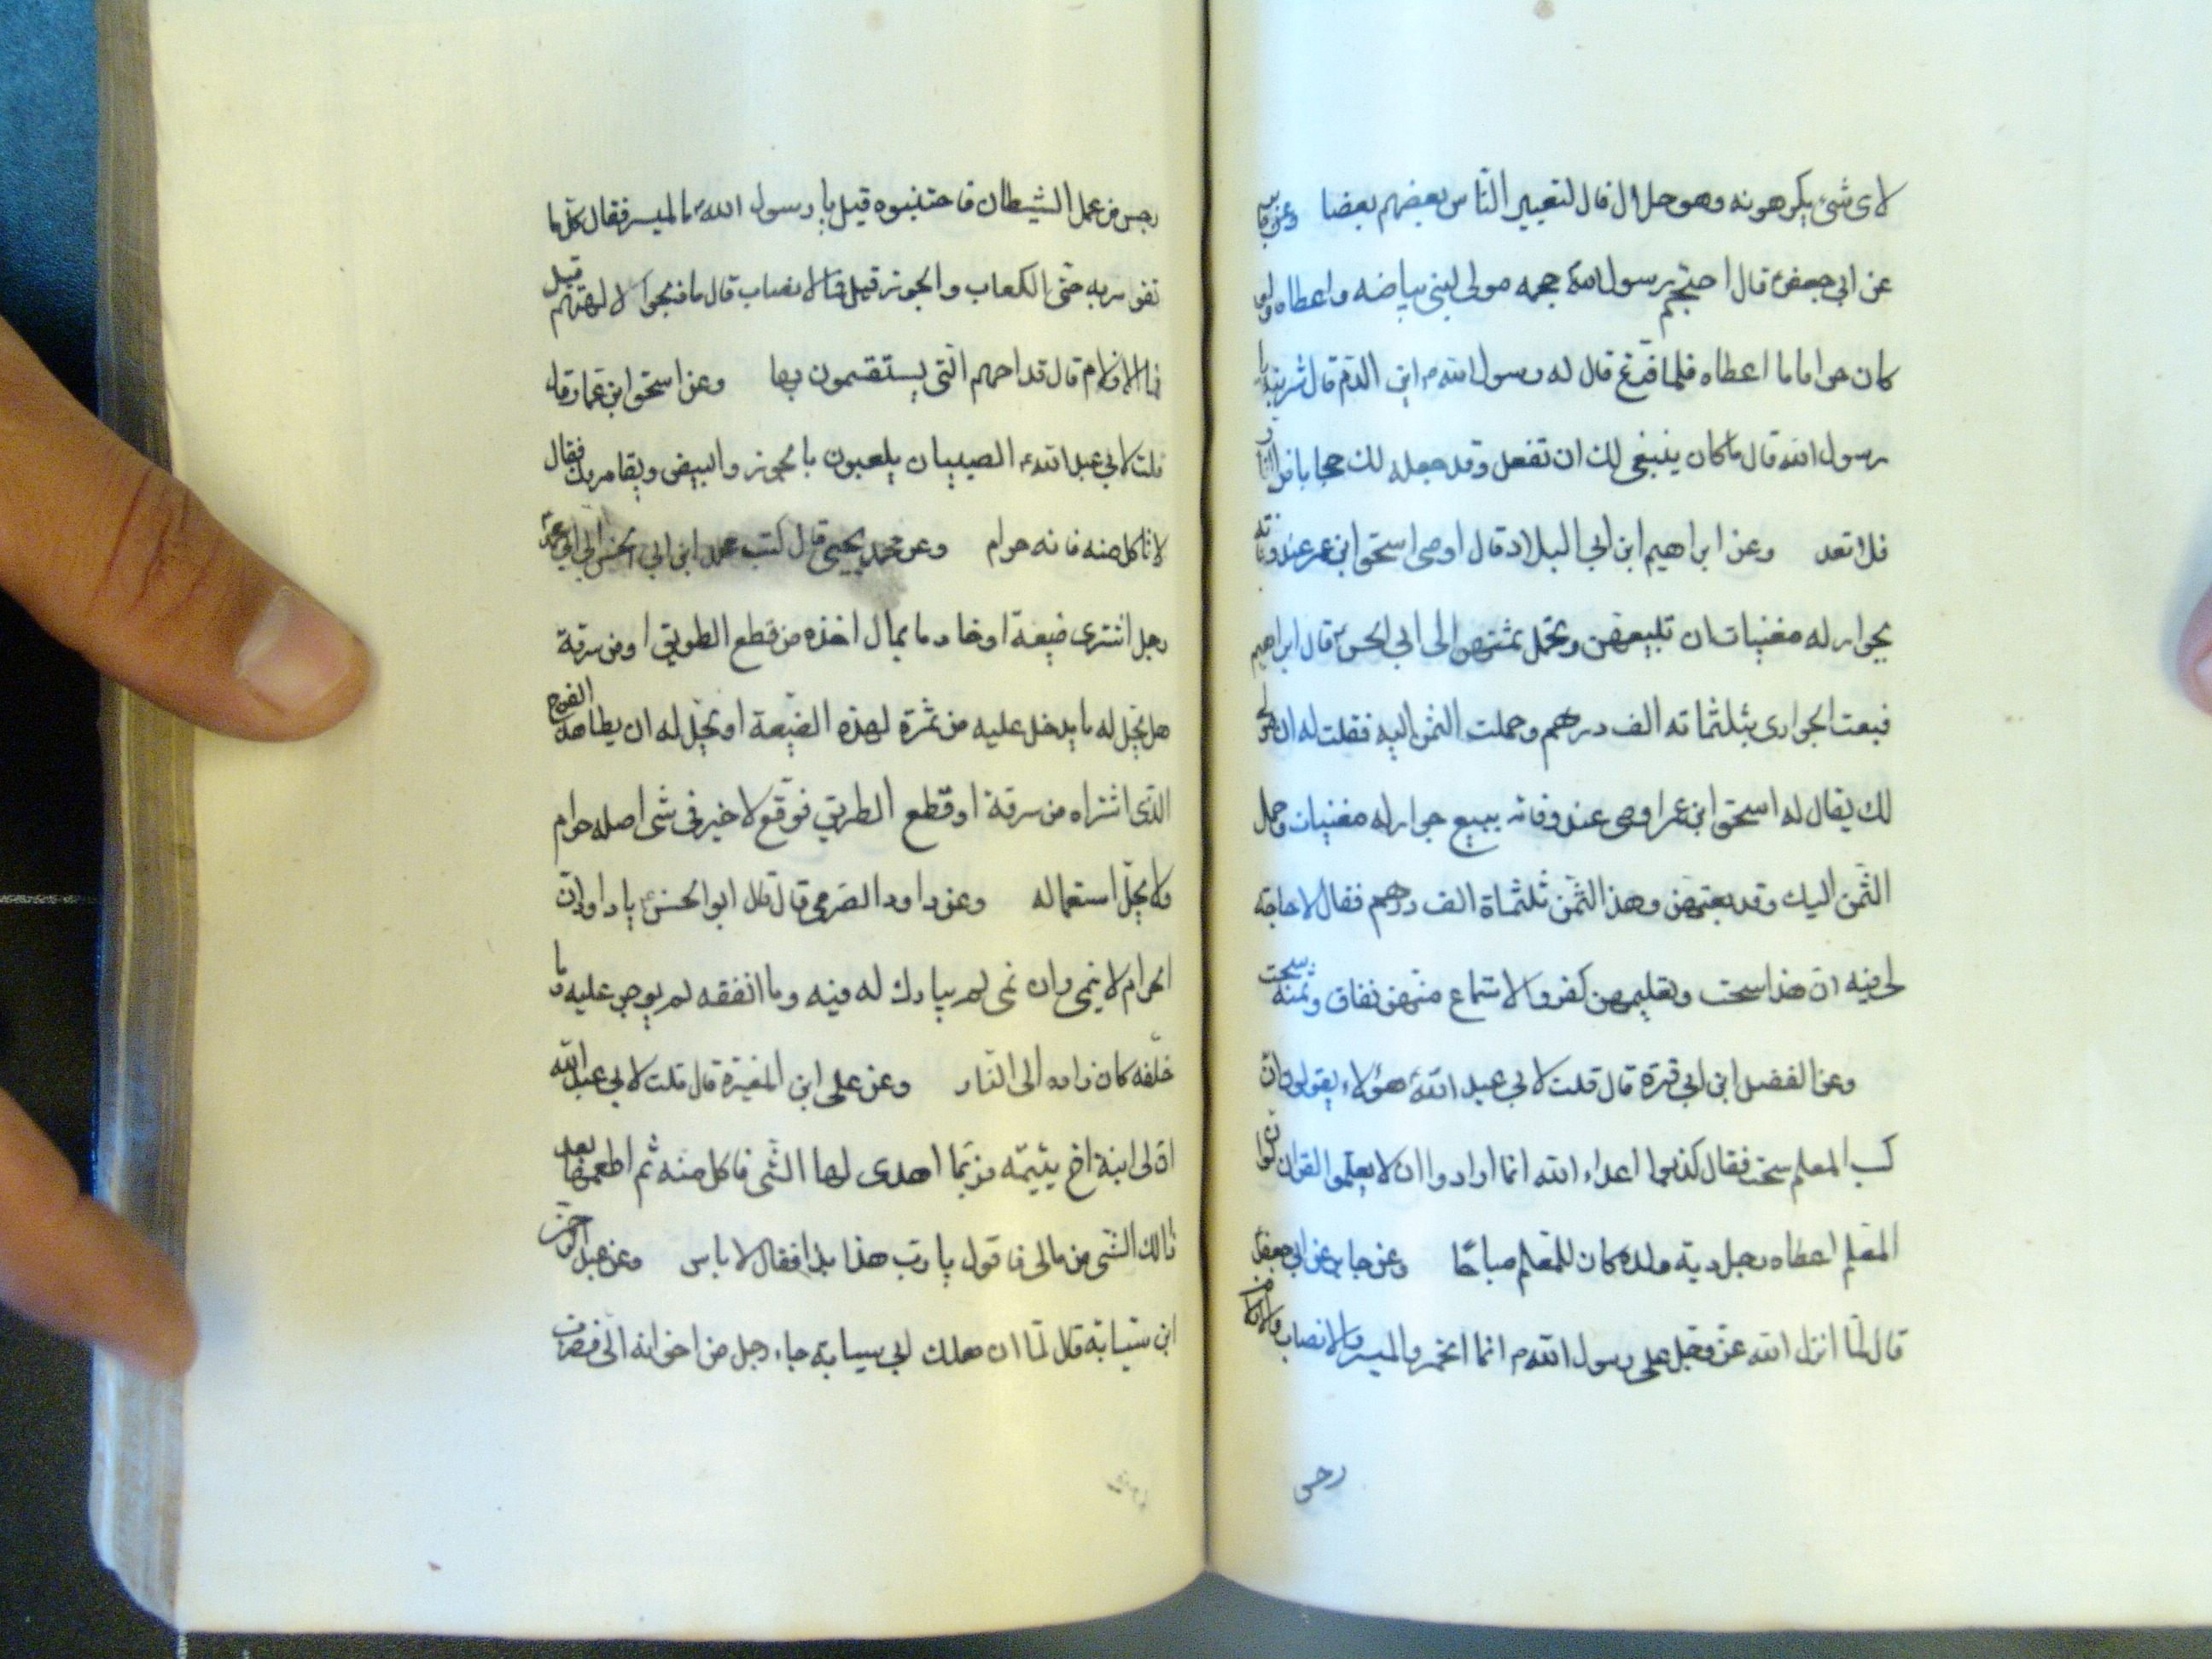 لاى شئ يكرهونه وهو حلال قال لتعيير الناس بعضهم بعضا وعن جابر
عن ابي جعفر ع قال احتجم رسول الله ص حجمه مولى لبنى بياضه واعطاه ولو
كان حراما ما اعطاه فلما فرغ قال له رسول الله ص اين الدم قال شربته يا
رسول الله قال ما كان ينبغى لك ان تفعل وقد جعله لك حجابا من النار
فلا تعد وعن ابراهيم ابن ابى البلاد قال اوصى اسحق ابن عمر عند وفاته
بجوار له مغنيات ان تبيعهن وتحمل بثمنهن الى ابي الحسن ع قال ابراهيم
فبعت الجوارى بثلثمائه الف درهم وحملت الثمن اليه فقلت له ان مولى
لك يقال له اسحق ابن عمر اوصى عند وفاته ببيع جوار له مغنيات وحمل
الثمن اليك وقد بعتهن وهذا الثمن ثلثماة الف درهم فقال لا حاجة
لى فيه ان هذا سحت وتعليمهن كفر والاستماع منهن نفاق وثمنه سحت
وعن الفضل ابن ابي قرة قال قلت لابي عبد الله ع هؤلاء يقولون ان
كسب المعلم سحت فقال كذبوا اعداء الله انما ارادوا ان لا يعلموا القران لو ان
المعلم اعطاه رجل دية ولده كان للمعلم مباحا وعن جابر عن ابي جعفر ع
قال لما انزل الله عز وجل على رسول الله ص انما الخمر والميسر والانصاب والازلام
رجس
رجس من عمل الشيطان فاجتنبوه قيل يا رسول الله ص ما الميسر فقال كل ما
تقومر به حتى الكعاب والجوز قيل فما الانصاب قال ما ذبحوا لالهتهم قيل
فما الازلام قال قداحهم التى يستقسمون بها وعن اسحق ابن عمار قال
قلت لابي عبد الله ع الصبيان يلعبون بالجوز والبيض ويقامرون فقال
لا تاكل منه فانه حرام وعن محمد يحيى قال كتب محمد ابن ابي الحسن الى ابي محمد ع
رجل اشترى ضيعة او خادما بمال اخذه من قطع الطريق او من سرقة
هل يحل له ما يدخل عليه من ثمرة لهذه الضيعة او يحل له ان يطا هذا الفرج
الذى اشتراه من سرقة او قطع الطريق فوقع لا خير فى شى اصله حرام
ولا يحل استعماله وعن داود الصرمى قال قال ابو الحسن ع يا داود ان
الحرام لا ينمى وان نمى لم يبارك له فيه وما انفقه لم يوجر عليه وما
خلفه كان زاده الى النار وعن على ابن المغيرة قال قلت لابي عبد الله
ان لى ابنة اخ يتيمة فربما اهدى لها الشى فاكل منه ثم اطعمها بعد
ذالك الشى من مالى فاقول يا رب هذا بذا فقال لا باس وعن عبد الرحمن
ابن سيابة قال لما ان هلك ابي سيابة جاء رجل من اخوانه الى فضرب